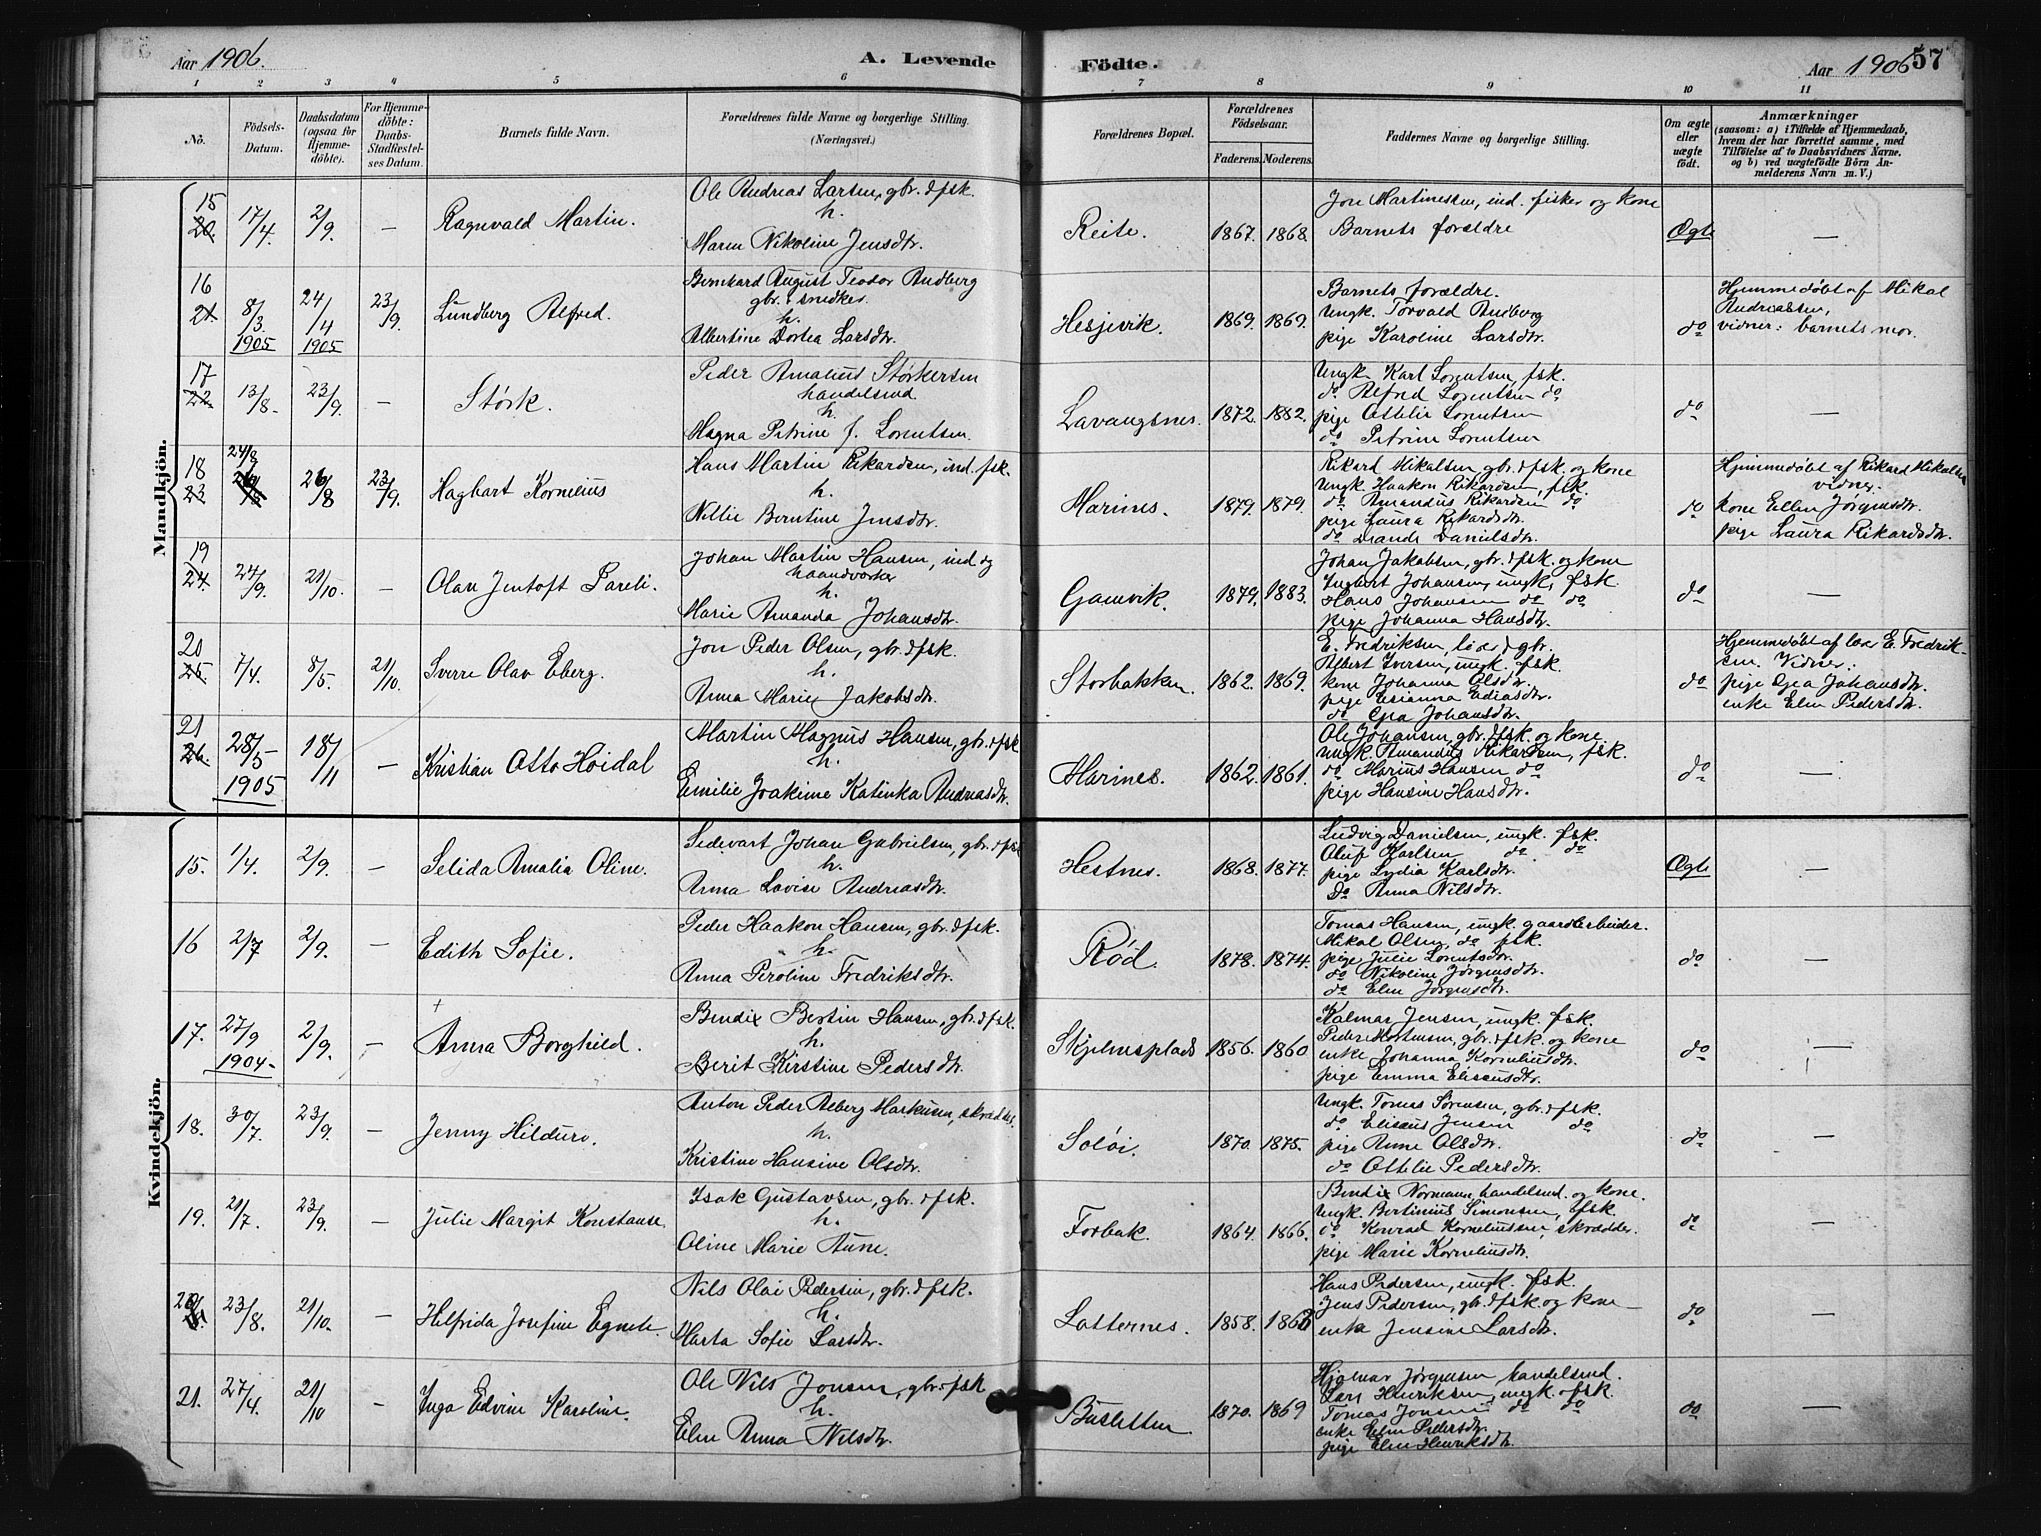 Aar 1906.
A. Levende
Födte.
Aar 1906
57
1 2 3 4 5 6 7 8 9 10 11
No.
Födsels-Datum.
Daabsdatum (ogsaa for Hjemme-döbte).
For Hjemme-döbte: Daabs-Stadfæstel-ses Datum.
Barnets fulde Navn.
Forældrenes fulde Navne og borgerlige Stilling.
(Næringsvei.)
Forældrenes Bopæl.
Forældrenes Födselsaar.
Faderens. Moderens.
Faddernes Navne og borgerlige Stilling.
Om ægte eller uægte födt.
Anmærkninger
(saasom: a) i Tilfælde af Hjemmedaab,
hvem der har forrettet samme, med
Tilföielse af to Daabsvidners Navne,
og b) ved uægtefödte Börn An-
melderens Navn m. V.)
Mandkjön.
15 20. 17/4. 2/9. — Ragnvald Martin.
Ole Andreas Larsen, gbr. & fsk.
h.
Maren Nikoline Jensdtr.
Reite. 1867. 1868.
Jon Martinessen, ind. fisker og kone
Barnets forældre
Ægte —
16 21. 8/3. 1905 24/4 1905 23/9. Lundberg Alfred.
Bernhard August Teodor Rudberg
gbr. & snedker.
h.
Albertine Dortea Larsdtr.
Hesjevik. 1869. 1869.
Barnets forældre.
Ungk. Torvald Rudberg
pige Karoline Larsdtr.
do
Hjemmedøbt af Mikal
Andreassen,
vidner: barnets mor.
17 22 13/8. 23/9. — Størk.
Peder Amalius Størkersen
handelsmd.
h.
Magna Petrine f. Lorentsen.
Lavangsnes. 1872. 1882.
Ungk. Karl Lorentsen, fsk.
do Alfred Lorentsen do
pige Ottilie Lorentsen
do Petrine Lorentsen
do —
18 23 24/8 26/8 23/9. Hagbart Kornelius
Hans Martin Rikardsen, ind. fsk.
h.
Nillie Berntine Jensdtr.
Marines. 1879. 1879.
Rikard Mikalsen, gbr. & fsk. og kone
Ungk. Haakon Rikardsen, fsk.
do Amandus Rikardsen do
pige Laura Rikardsdtr.
do Danielsdtr.
do
Hjemmedøbt af Rikard Mikalsen
vidner.
kone Ellen Jørgensdtr.
pige Laura Rikardsdtr.
19 24. 24/9. 21/10. — Olav Jentoft Pareli.
Johan Martin Hansen, ind og
haandværker
h.
Marie Amanda Johansdtr.
Gamvik. 1879. 1883.
Johan Jakobsen, gbr. & fsk. og kone
Ingbart Johansen, ungk. fsk.
Hans Johansen do do
pige Johanna Hansdtr.
do —
20 25. 7/4. 8/5. 21/10. Sverre Olav Eberg.
Jon Peder Olsen, gbr. & fsk.
h.
Anna Marie Jakobsdtr.
Storbakken. 1862. 1869.
E. Fredriksen, lærer & gbr.
Albert Iversen, ungk. fsk.
kone Johanna Olsdtr.
pige Esianna Ediasdtr.
do Gea Johansdtr.
do
Hjemmedøbt af lær E. Fredrik-
sen. Vidner:
pige Gea Johansdtr.
enke Elen Pedersdtr.
21 26. 28/5 1905 18/11 — Kristian Otto Høidal
Martin Magnus Hansen, gbr. & fsk
h.
Emilie Joakime Katinka Andreasdtr.
Marines. 1862. 1861.
Ole Johansen, gbr. & fsk. og kone
ungk. Amandus Rikardsen, fsk.
do Marius Hansen do
pige Hansine Hansdtr.
do —
Kvindekjön.
15. 1/4. 2/9. — Selida Amalia Oline.
Sedevart Johan Gabrielsen, gbr. & fsk
h.
Anna Lovise Andreasdtr.
Hestnes. 1868. 1877.
Ludvig Danielsen, ungk. fsk.
Oluf Karlsen do do
pige Lydia Karlsdtr.
Do Anna Nilsdtr.
Ægte —
16 2/7 2/9. — Edith Sofie.
Peder Haakon Hansen, gbr. & fsk.
h.
Anna Peroline Fredriksdtr.
Rød. 1878. 1874.
Tomas Hansen, ungk. gaardarbeider.
Mikal Olsen, do fsk.
pige Julie Lorentsdtr.
do Nikoline Jørgensdtr.
do Elen Jørgensdtr.
do —
17. 27/9 1904. 2/9. — Anna Borghild.
Bendix Bertin Hansen, gbr. & fsk.
h.
Berit Kirstine Pedersdtr.
Skjelnesplads 1856. 1860
Kalmar Jensen, ungk. fsk.
Peder Mortensen, gbr. & fsk. og kone
enke Johanna Korneliusdtr.
pige Emma Eliseusdtr.
do —
18. 30/7. 23/9. — Jenny Hilduro.
Anton Peder Aeberg Markusen, skrædder.
h.
Kristine Hansine Olsdtr.
Soløi. 1870. 1875.
Ungk. Tomas Sørensen, gbr. & fsk.
do Eliseus Jensen do
pige Anne Olsdtr.
do Ottilie Pedersdtr.
do —
19. 21/7. 23/9. — Julie Margit Konstanse.
Isak Gustavsen, gbr. & fsk.
h.
Oline Marie Aune.
Forbak. 1864. 1866.
Bendix Normann, handelsmd. og kone.
Ungk. Bertinius Simonsen, fsk.
do Konrad Korneliussen, skrædder.
pige Marie Korneliusdtr.
do —
20 23/8. 21/10. — Helfrida Josefine Egnete.
Nils Olai Pedersen, gbr. & fsk.
h.
Marta Sofie Larsdtr.
Latternes. 1858. 1863
Hans Pedersen, ungk. fsk.
Jens Pedersen, gbr. & fsk. og kone
enke Jensine Larsdtr.
do —
21. 27/4. 21/10 — Inga Edvine Karoline.
Ole Nils Jonsen, gbr. & fsk
h.
Elen Anna Nilsdtr.
Busletten 1870. 1869
Hjalmar Jørgensen, handelsmd.
Lars Henriksen, ungk. fsk.
Tomas Jonsen do do
enke Elen Pedersdtr.
pige Elen Henriksdtr.
do —